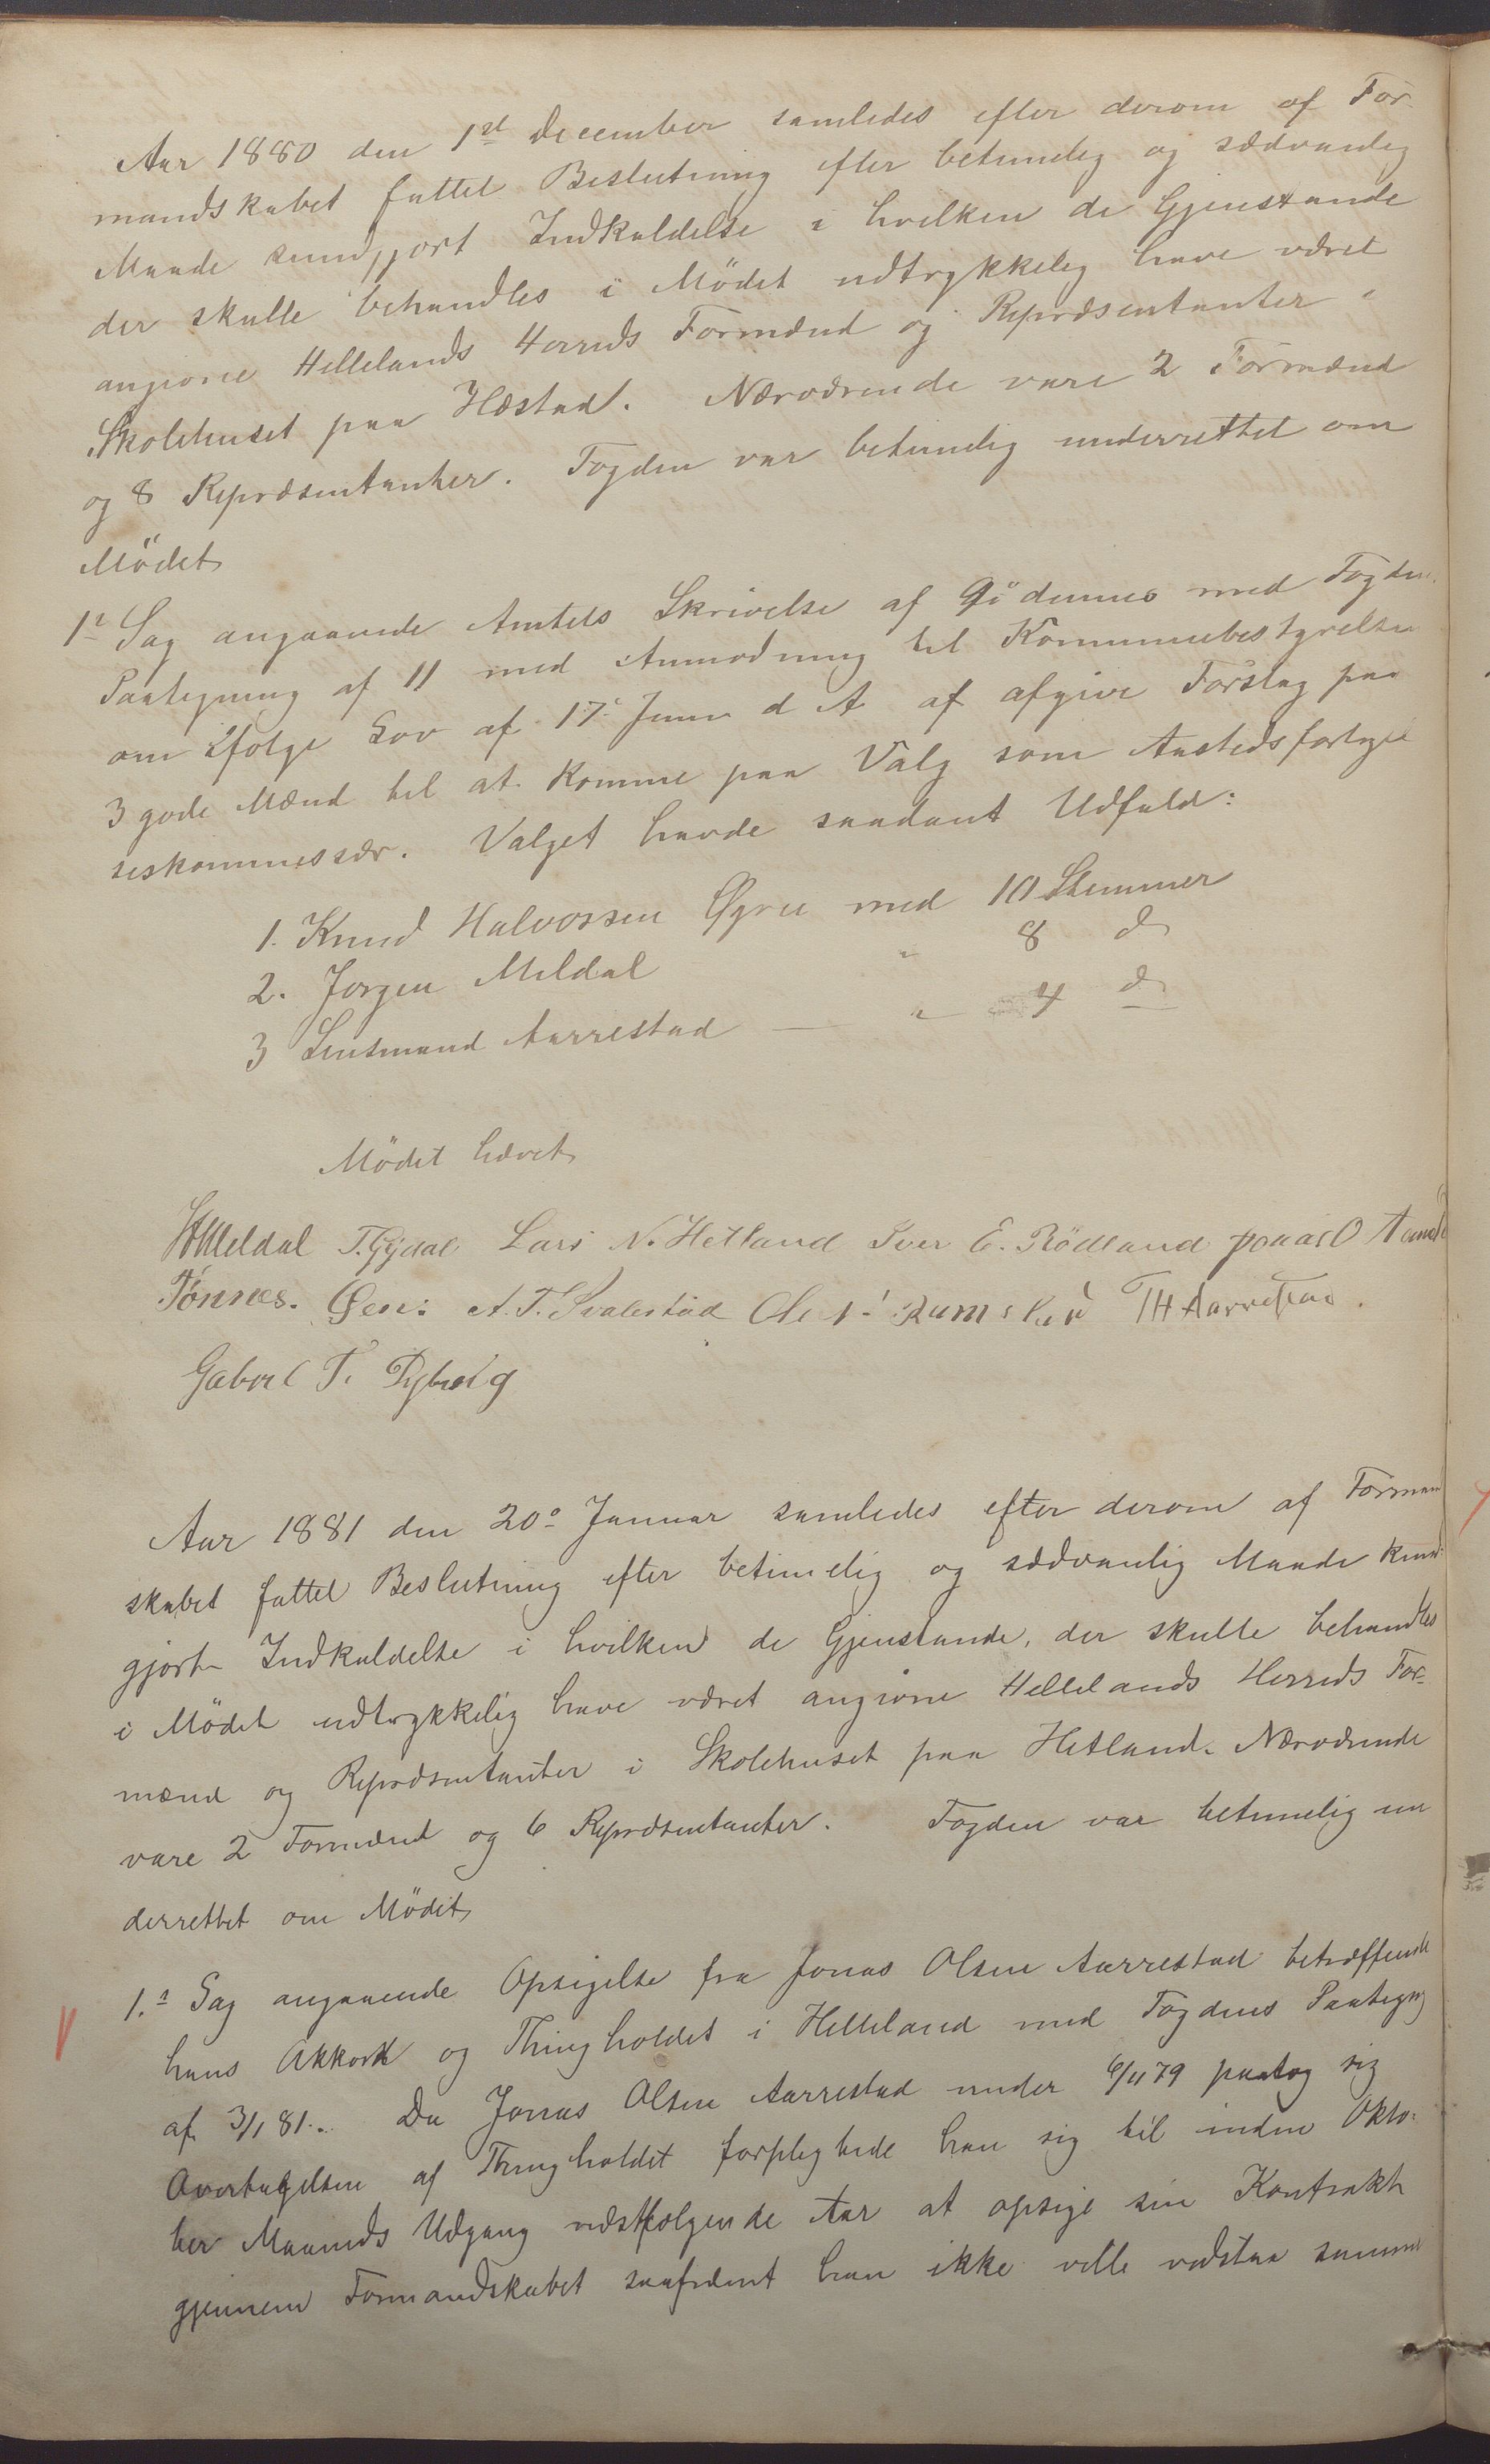 Aar 1880 den 1st December samledes efter derom af For-
mandskabet fattet Beslutning efter betimelig og sædvanlig
Maade kundgjort Indkaldelse i hvilken de Gjenstande
der skulle behandles i Mödet udtrykkelig have været
angivne Hellelands Herreds Formænd og Repræsentanter i
Skolehuset paa Hæstad. Nærværende vare 2 Formænd
og 8 Repræsentanter. Fogden var betimelig underrettet om
Mödet
1ᵉ Sag angaaende Amtets Skrivelse af 9de dennes med Fogdens
Paategning af 11 med Anmodning til Kommunebestyrelsen
om ifølge Lov af 17de Juni d A at afgive Forslag paa
3 gode Mænd til at komme paa Valg som Aastedsfortye
seskommissær. Valget havde saadant Udfald:
1. Knud Halvorsen Øgree med 10 Stemmer
2. Jørgen Meldal " 8 do
3 Lensmand Aarrestad — " 4 do
Mödet hævet
Meldal T. Gydal Lars N. Hetland Iver E. Rödland
Tönnes. Øen: A. T. Svalestad Ole TH Aarrestad.
Gabriel T. Dybing
Aar 1881 den 20de Januar samledes efter derom af Forman
skabet fattet Beslutning efter betimelig og sædvanlig Maade kund-
gjort Indkaldelse i hvilken de Gjenstande, der skulle behandles
i Mödet udtrykkelig have været angivne Hellelands Herreds For-
mænd og Repræsentanter i Skolehuset paa Hetland. Nærværende
vare 2 Formænd og 6 Repræsentanter. Fogden var betimelig un
derrettet om Mödet
1.ᵉ Sag angaaende Opsigelse fra Jonas Olsen Aarrestad betræffende
hans Akkord og Thingholdet i Helleland med Fogdens Paategng
af 3/1 81.. Da Jonas Olsen Aarrestad under 6/11 79 paatog sig
Overtagelsen af Thingholdet forpligtede han sig til inden Okto-
ber Maaneds Udgang næstfølgende Aar at opsige sin Kontrakt
gjennem Formandskabet saafremt han ikke ville vedstaa samme